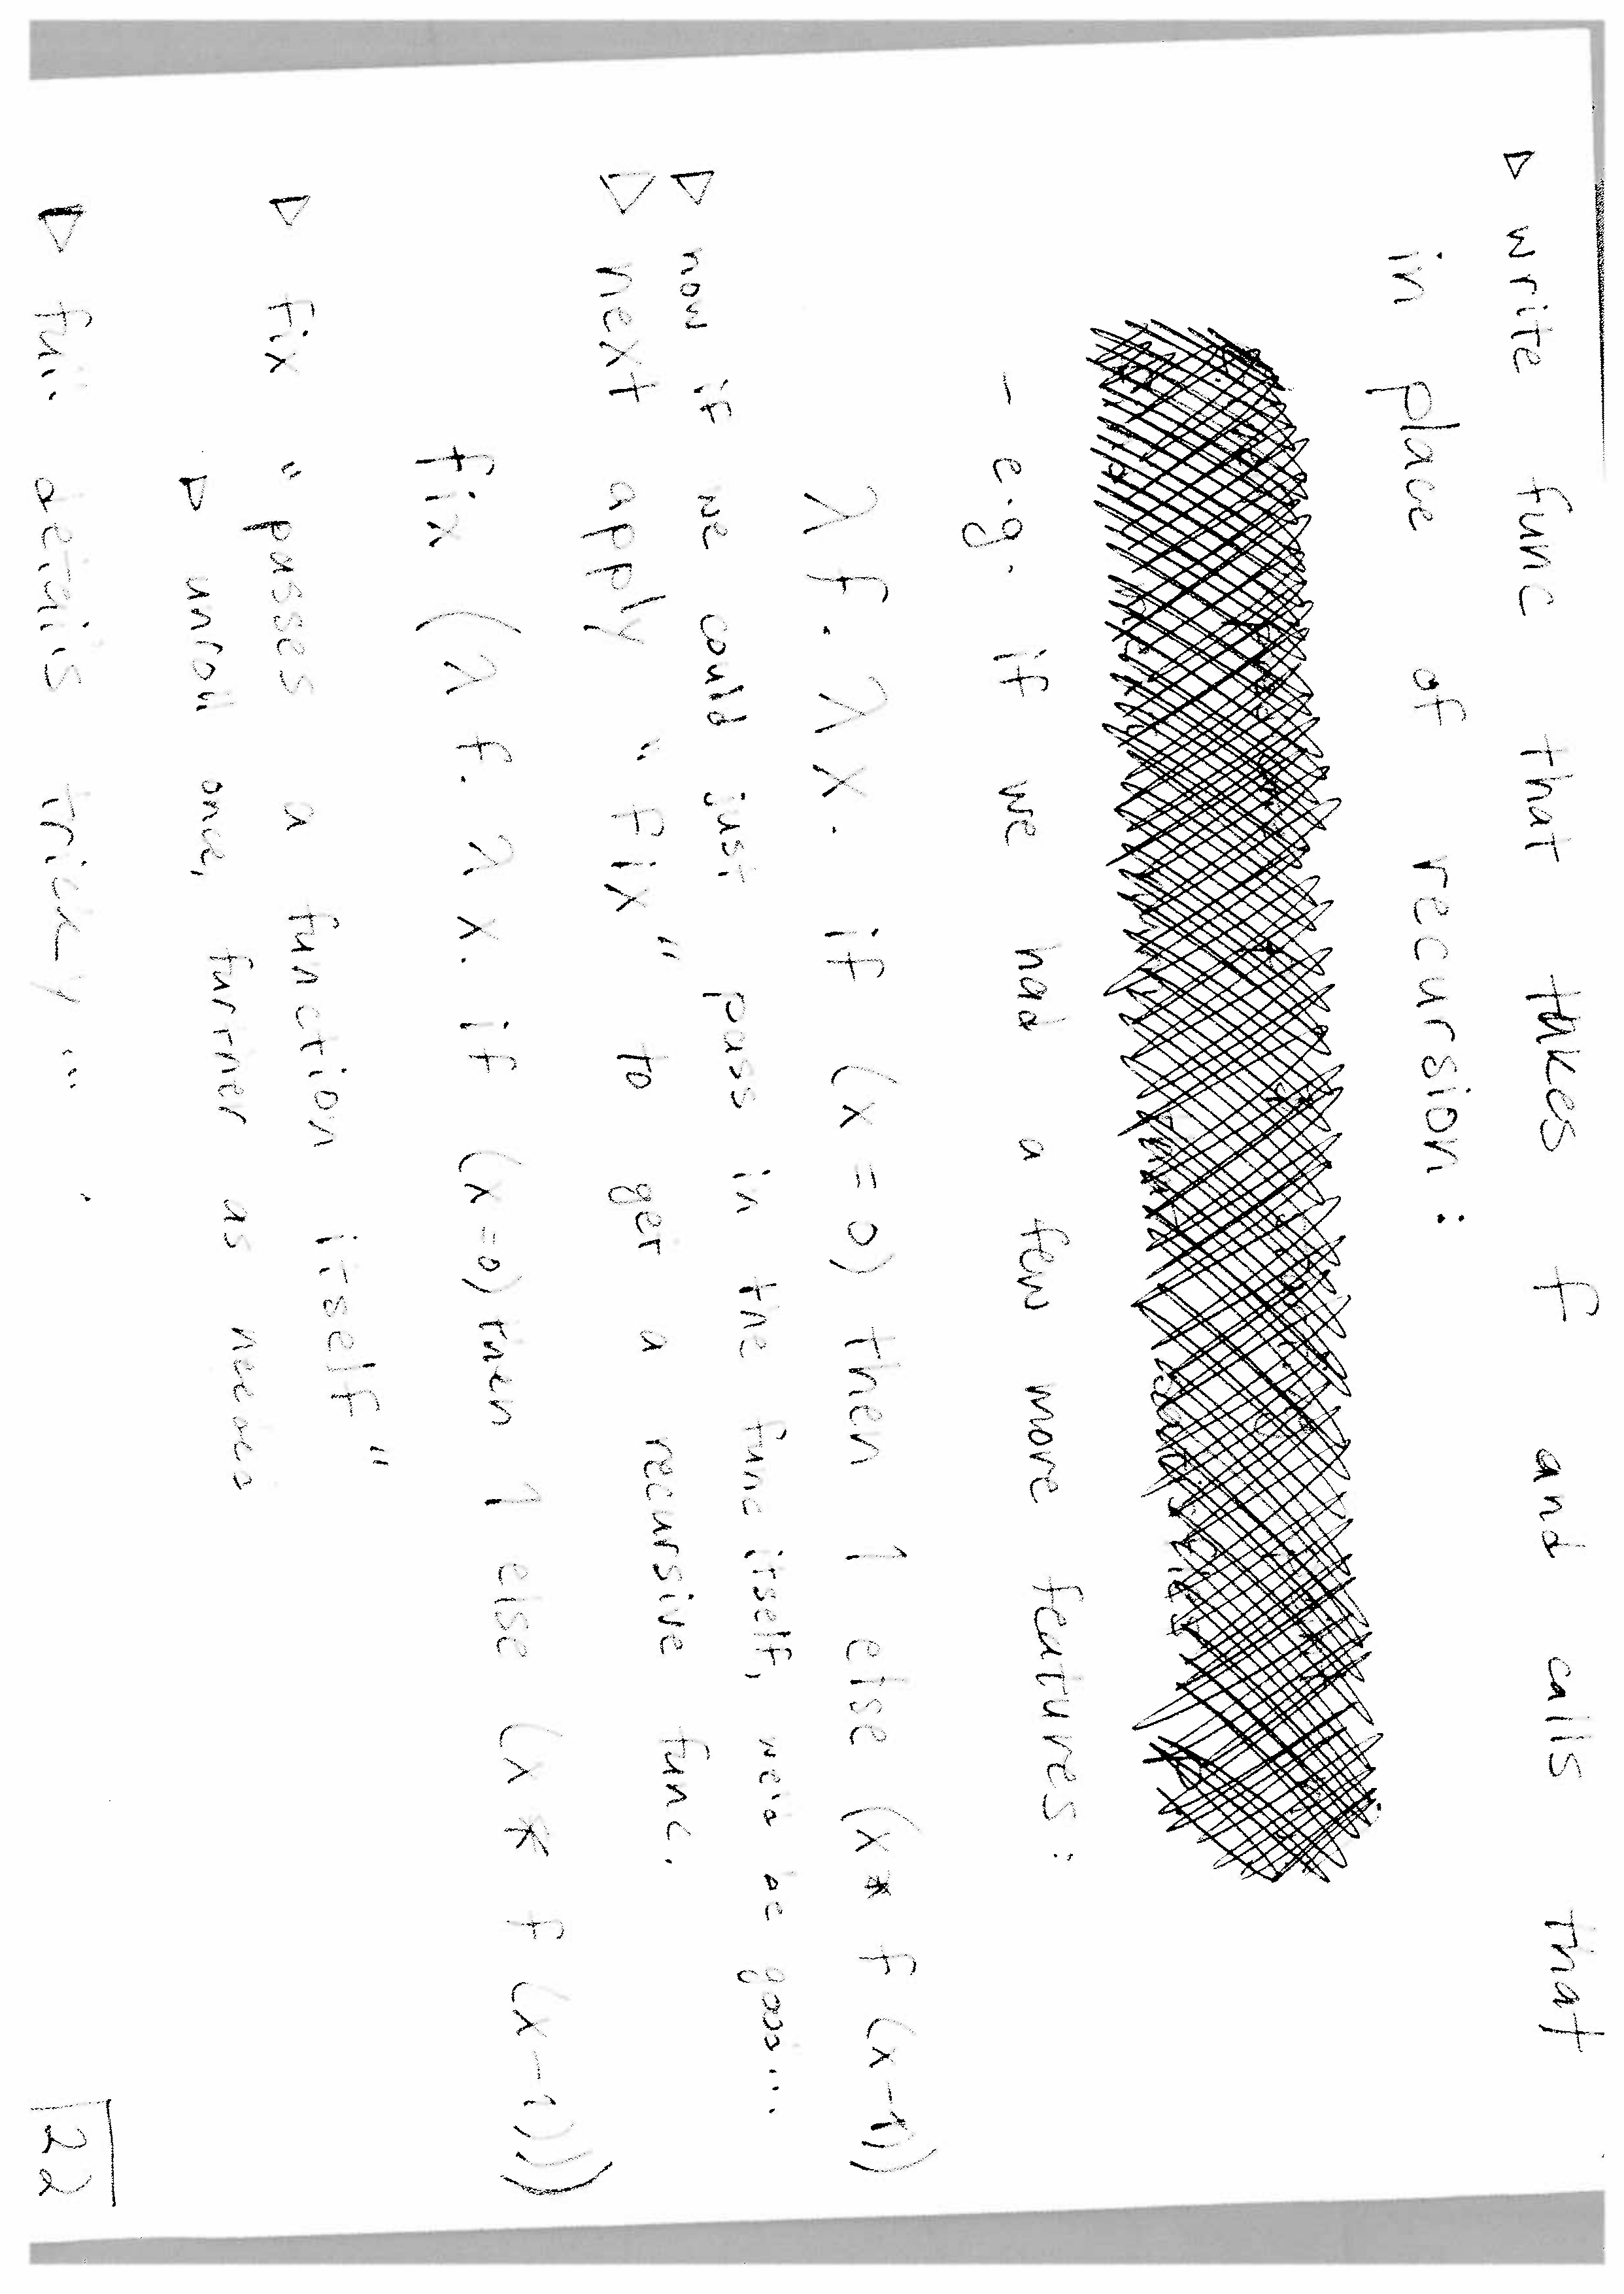 ▷ write func that takes f and calls that
in place of recursion:
- e.g. if we had a few more features:
λf. λx. if (x = 0) then 1 else (x * f (x-1))
▷ now if we could just pass in the func itself, we'd be good...
▷ next apply "fix" to get a recursive func.
fix (λf. λx. if (x=0) then 1 else (x * f (x-1)))
▷ fix "passes a function itself"
▷ unroll once, further as needed
▷ full details tricky ... .
22